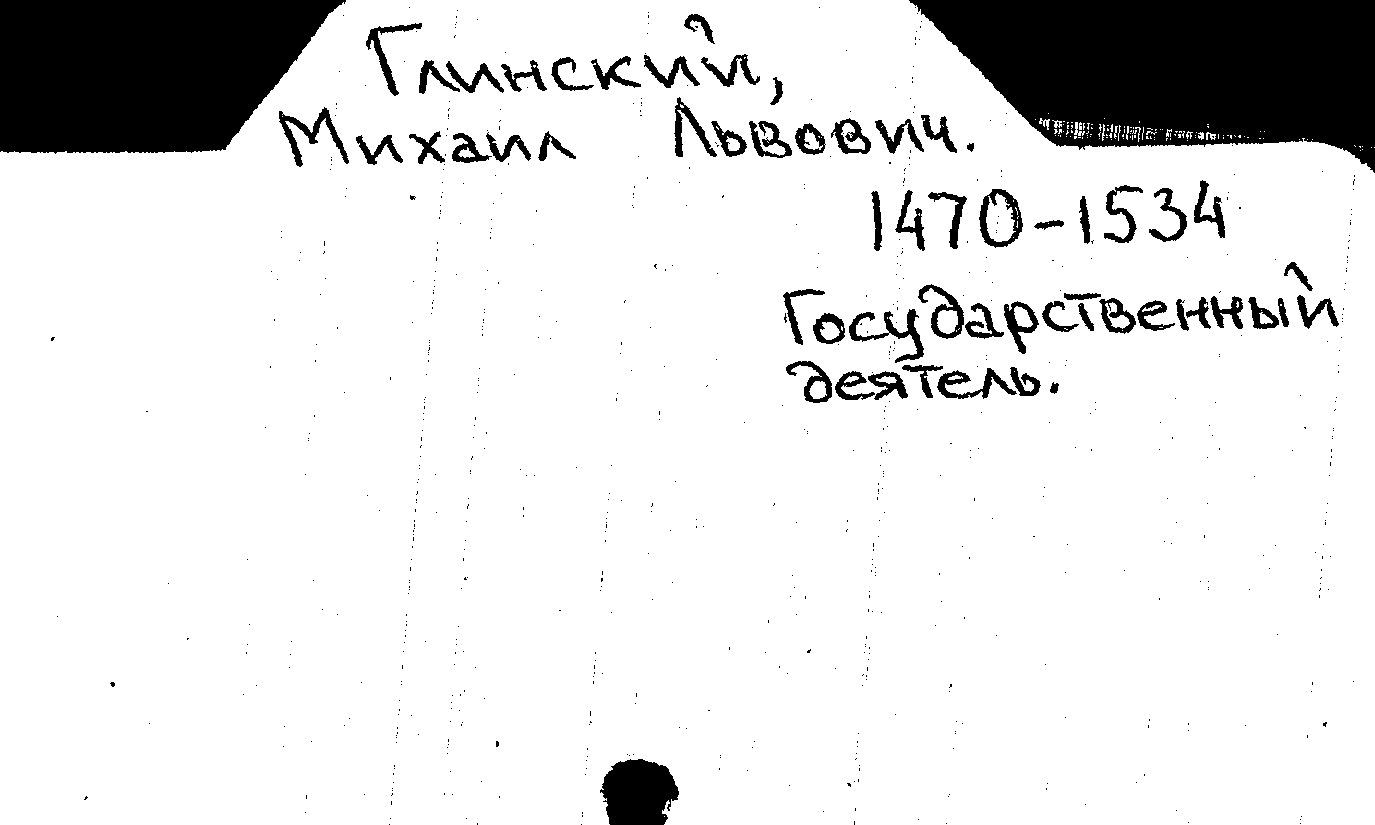 Глинский,
Михаил Львович.
1470-1534
Государственный
деятель.